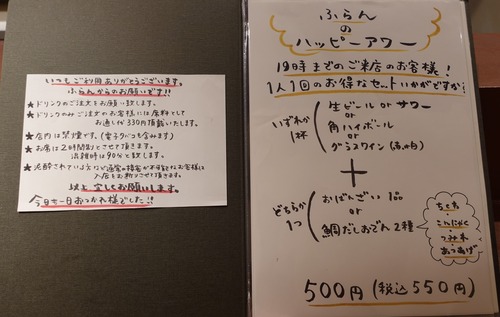 いつもご利用ありがとうございます。
ふらんからのお願いです!!
★ドリンクのご注文をお願い致します。
★ドリンクのみご注文のお客様には原則として
お通しが330円頂戴いたします。
★店内は禁煙です。(電子タバコも含みます)
★お席は2時間制とさせて頂きます。
混雑時は90分と致します。
★泥酔されている方など通常の接客が不可能なお客様は
入店をお断りさせて頂きます。
以上宜しくお願いします。
今日も一日おつかれ様でした!!
ふらん
の
ハッピーアワー
19時までのご来店のお客様!
1人1回のお得なセットいかがですか?
いずれか
1杯
生ビール or サワー
or
角ハイボール
or
グラスワイン(赤or白)
+
どちらか
1つ
おばんざい 1品
or
鯛だしおでん2種
ちくわ
こんにゃく
つみれ
あつあげ
500円(税込550円)